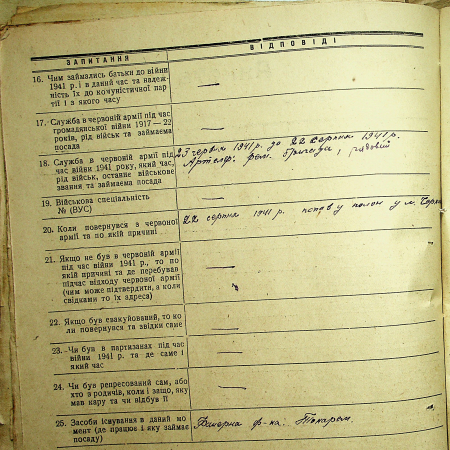 ЗАПИТАННЯ
ВІДПОВІДІ
16. Чим займались батьки до війни
1941 р. і в даний час та належ-
ність їх до комуністичної пар-
тії і з якого часу
—
17. Служба в червоній армії під час
громадянської війни 1917 — 22
років, рід військ та займаема
посада
—
18. Служба в червоній армії під
час війни 1941 року, який час,
рід військ, останне військове
звання та займаема посада
23 червня 1941 р. до 22 серпня 1941 р.
бригада, рядовий
19. Військова спеціальність
№ (ВУС)
—
20. Коли повернувся з червоної
армії та по якій причині
22 серпня 1941 р. попав у полон у м.
21. Якщо не був в червоній армії
під час війни 1941 р., то по
якій причині та де перебував
підчас відходу червоної армії
(чим може підтвердити, а коли
свідками то їх адреса)
—
22. Якщо був евакуйований, то ко-
ли повернувся та звідки саме
—
23. Чи був в партизанах під час
війни 1941 р. та де саме і
який час
—
24. Чи був репресований сам, або
хто з родичів, коли і защо, яку
мав кару та чи відбув її
—
25. Засоби існування в даний мо-
мент (де працює і яку займає
посаду)
Фанерна ф-ка. Токарем.